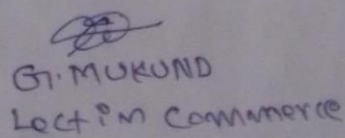 G. MUKUND
Lect in Commerce